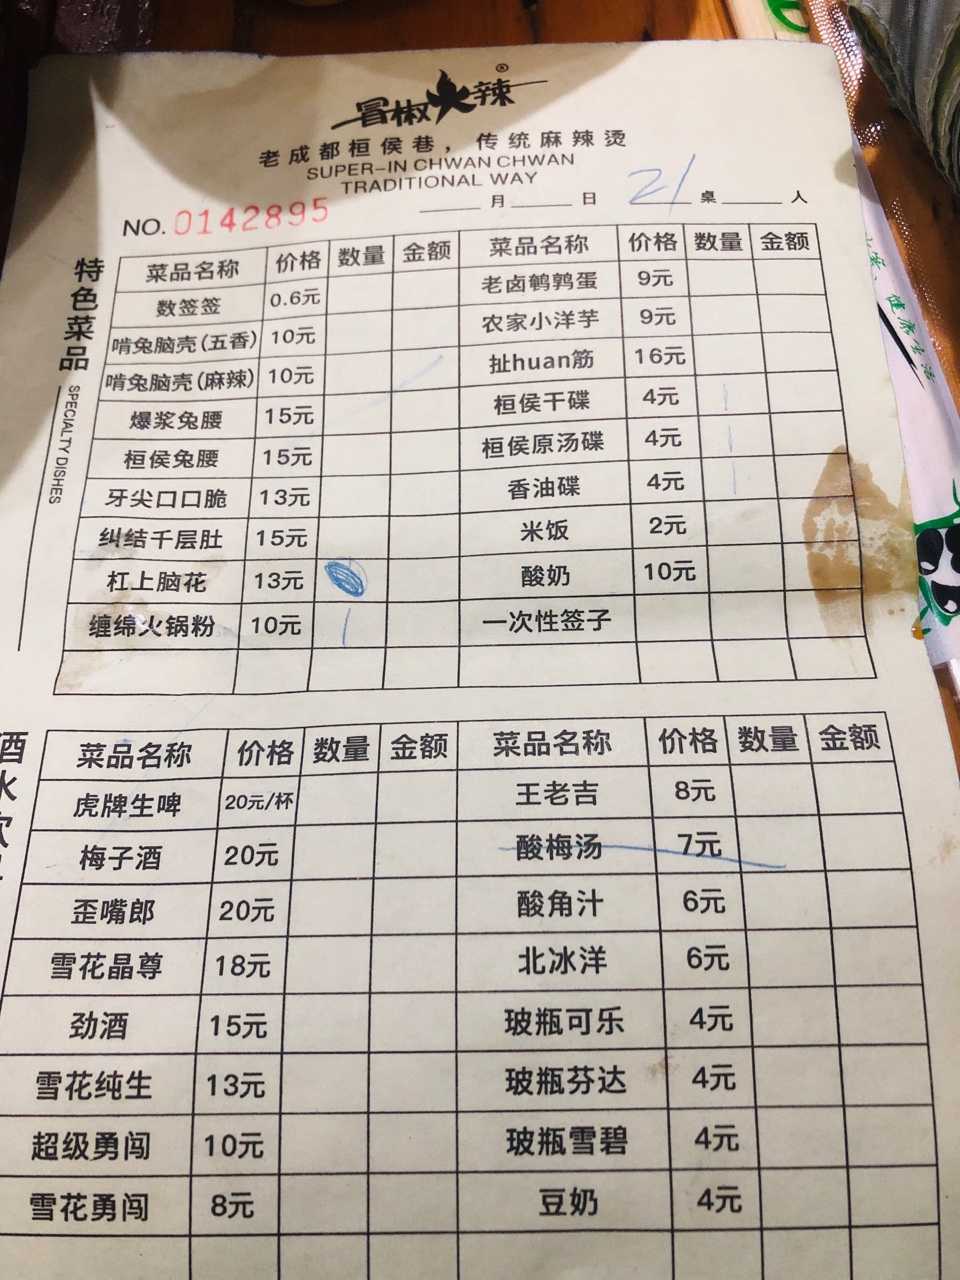 冒椒火辣®
老成都桓侯巷，传统麻辣烫
SUPER-IN CHWAN CHWAN
TRADITIONAL WAY
NO. 0142895 月 日 21 桌 人
特色菜品
SPECIALTY DISHES
菜品名称 价格 数量 金额 菜品名称 价格 数量 金额
数签签 0.6元 老卤鹌鹑蛋 9元
啃兔脑壳(五香) 10元 农家小洋芋 9元
啃兔脑壳(麻辣) 10元 扯huan筋 16元
爆浆兔腰 15元 桓侯干碟 4元
桓侯兔腰 15元 桓侯原汤碟 4元
牙尖口口脆 13元 香油碟 4元
纠结千层肚 15元 米饭 2元
杠上脑花 13元 酸奶 10元
缠绵火锅粉 10元 一次性签子
菜品名称 价格 数量 金额 菜品名称 价格 数量 金额
虎牌生啤 20元/杯 王老吉 8元
梅子酒 20元 酸梅汤 7元
歪嘴郎 20元 酸角汁 6元
雪花晶尊 18元 北冰洋 6元
劲酒 15元 玻瓶可乐 4元
雪花纯生 13元 玻瓶芬达 4元
超级勇闯 10元 玻瓶雪碧 4元
雪花勇闯 8元 豆奶 4元